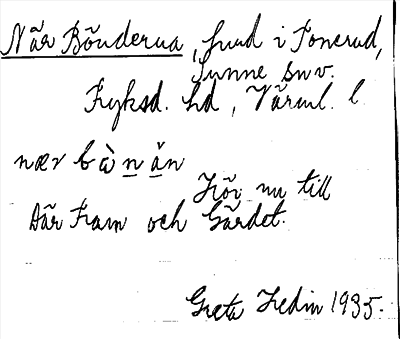 När Bönderna, hud i Tonerud,
Sunne snv.
Fryksd. hd, Värml. l.
nær bànän
Hör nu till
där Fram och Gärdet.
Greta Hedin 1935.